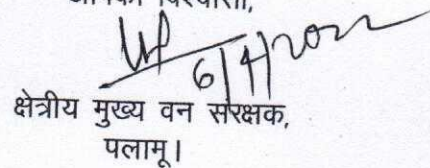 6/4/2022
क्षेत्रीय मुख्य वन संरक्षक,
पलामू।